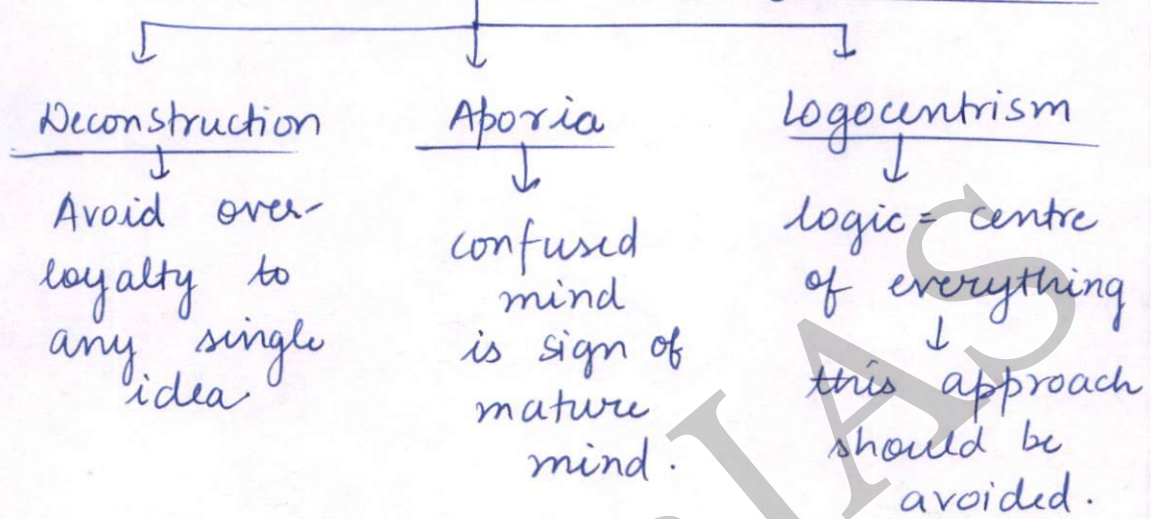 Deconstruction
Avoid over-
loyalty to
any single
idea
Aporia
confused
mind
is sign of
mature
mind.
Logocentrism
logic = centre
of everything
this approach
should be
avoided.
IAS